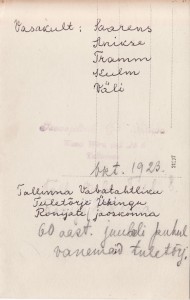 Vasakult: Saarens
Anikse
Tramm
Kulm
Väli
Spt. 1923.
Tallinna Vabatahtliku
Tuletõrje Ühingu
Ronijate jaoskonna
60 aast. juubeli puhul
vanemad tuletõrj.